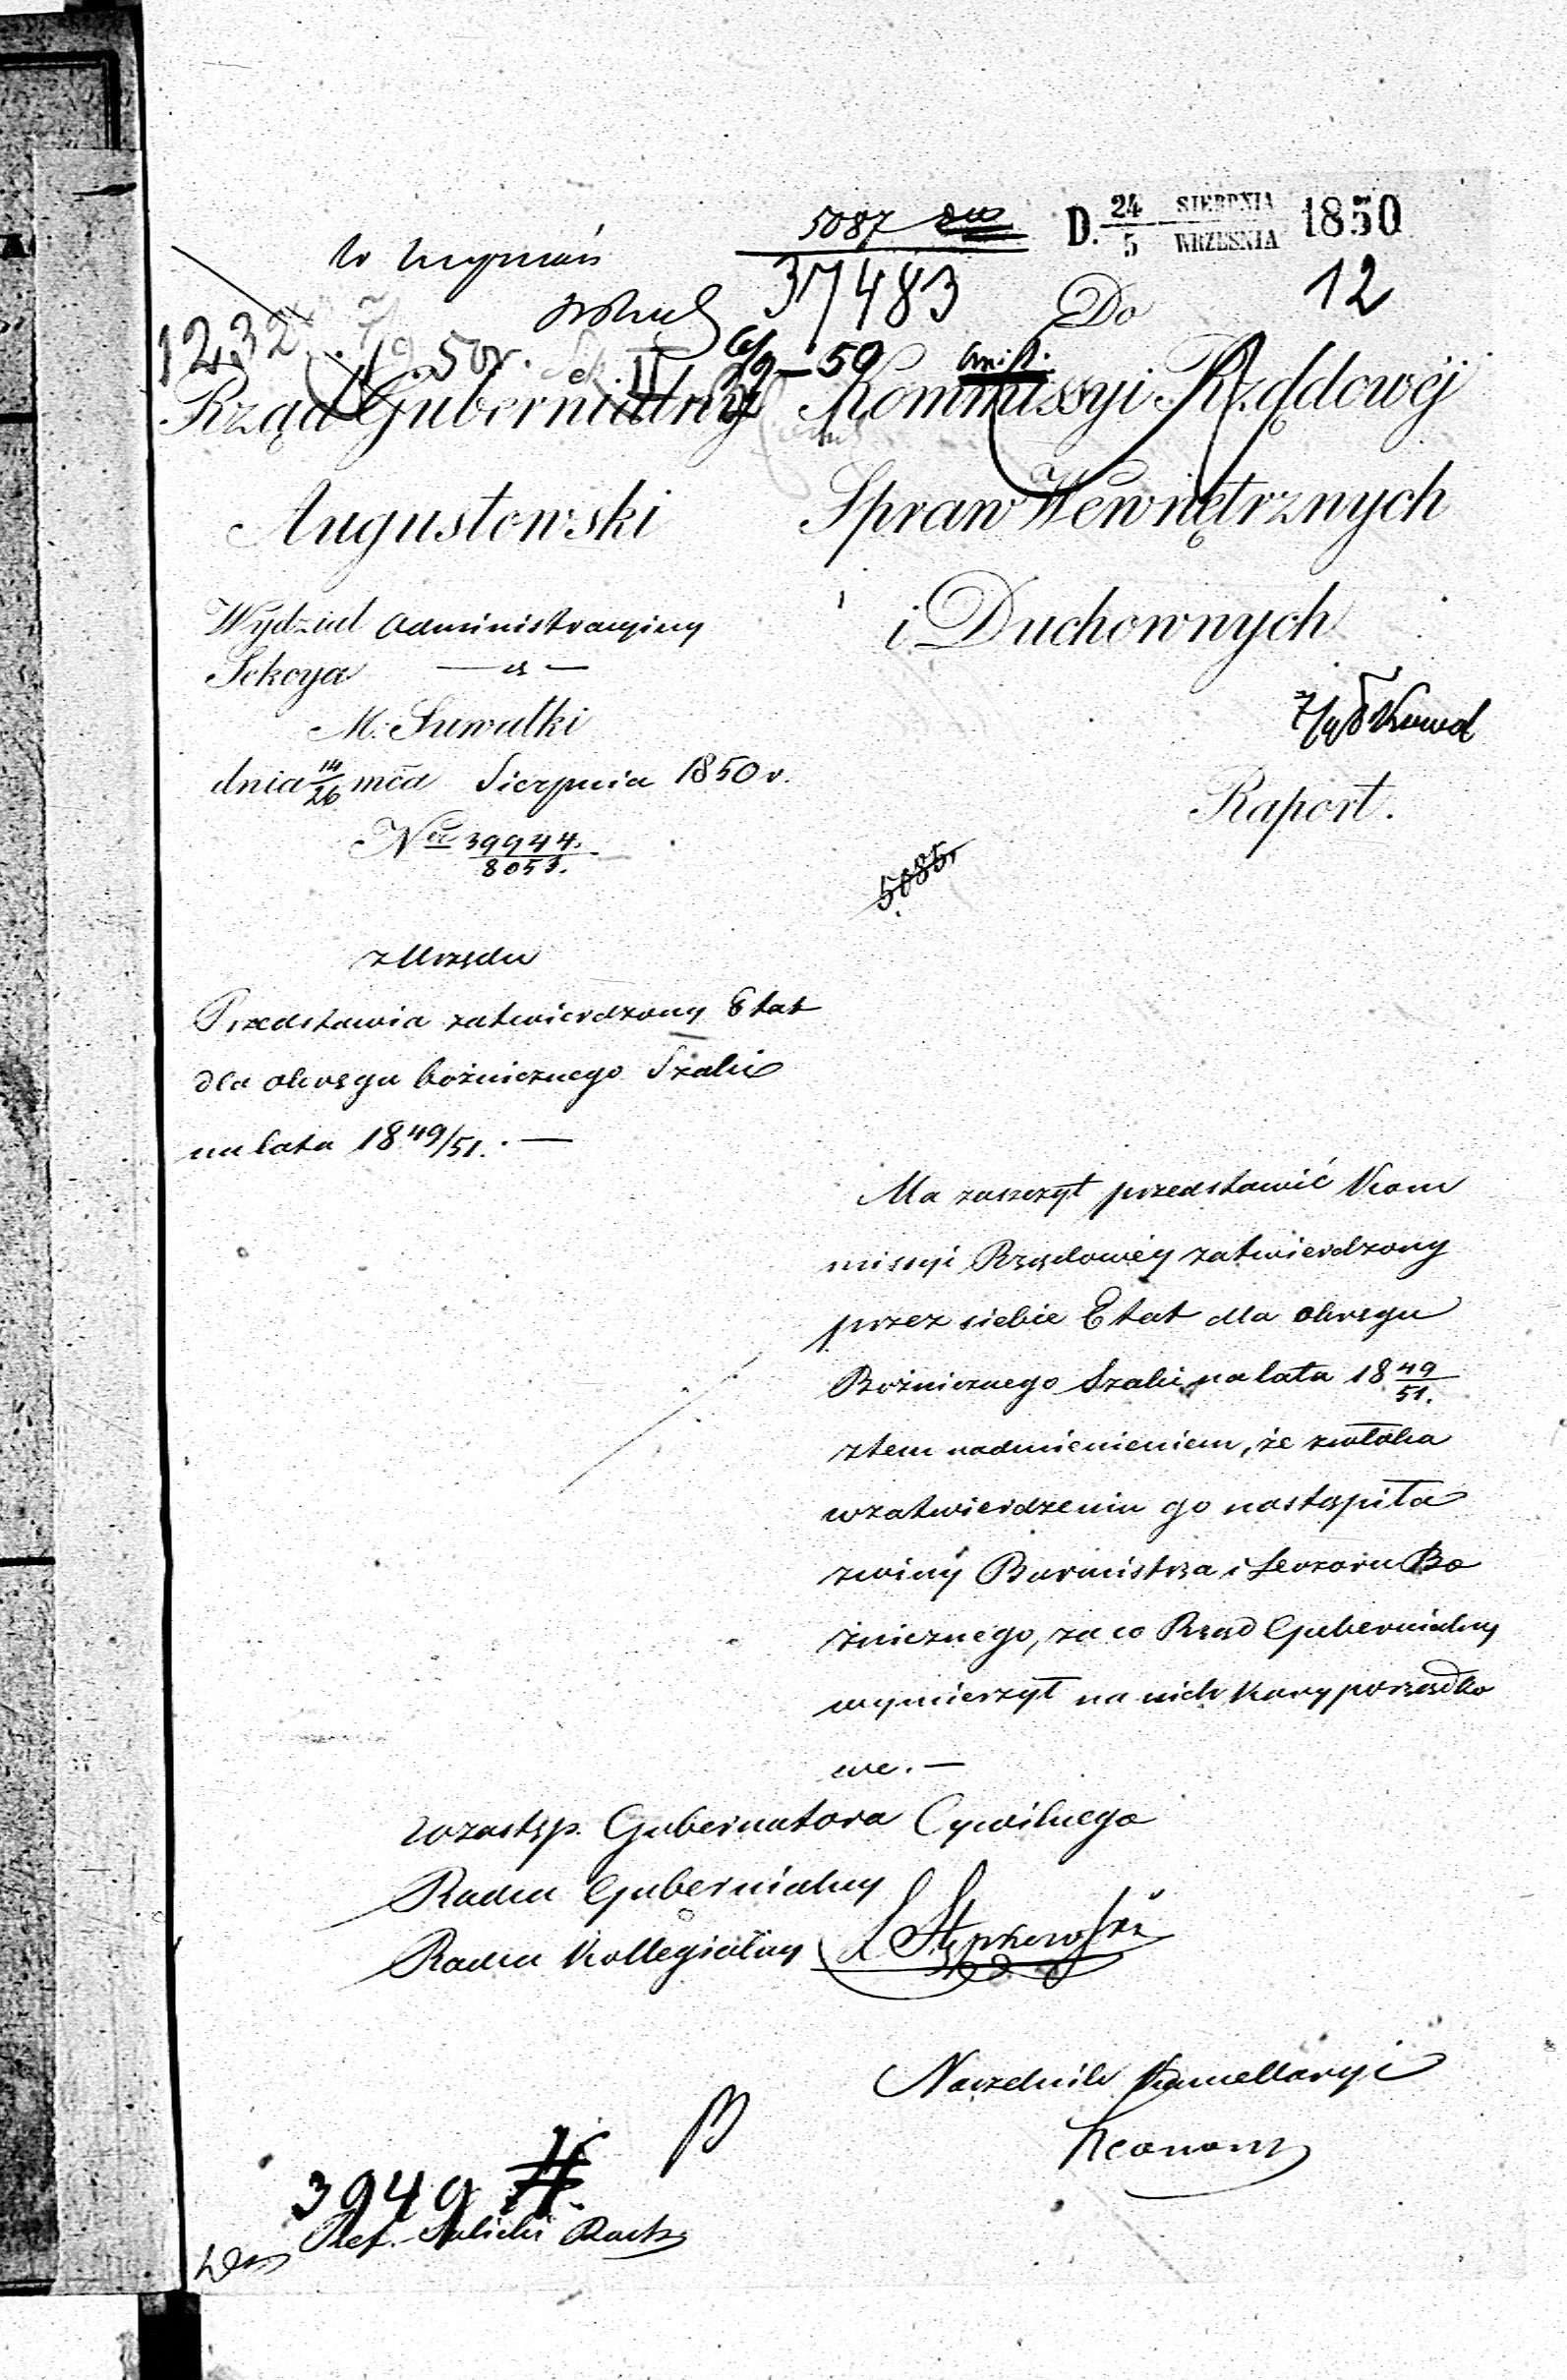 5087
D. 24/5 SIERPNIA WRZESNIA 1850
37483
12
1232
7/9 50 r.
Do
Rząd Gubernialny
Augustowski
Kommissyi Rządowéj
Spraw Wewnętrznych
i Duchownych
Wydział Administracyiny
Sekcya
M. Suwałki
dnia 14/26 mca Sierpnia 1850 r.
Ner 39944./8053.
Raport.
5085.
z Urzędu
Przedstawia zatwierdzony Etat
dla okręgu bożnicznego Szaki
na lata 1849/51. —
Ma zaszczyt przedstawić Kom
missyi Rządowéy zatwierdzony
przez siebie Etat dla okręgu
Bożnicznego Szaki na lata 18 49/51.
z tem nadmienieniem, że zwłoka
w zatwierdzeniu go nastąpiła
z winy Burmistrza i Dozoru Bo
żnicznego, za co Rząd Gubernialny
wymierzył na nich kary porządko
we. —
w zastęp. Gubernatora Cywilnego
Radca Gubernialny
Radca Kollegialny
Naczelnik Kancellaryi
3949
Ref.